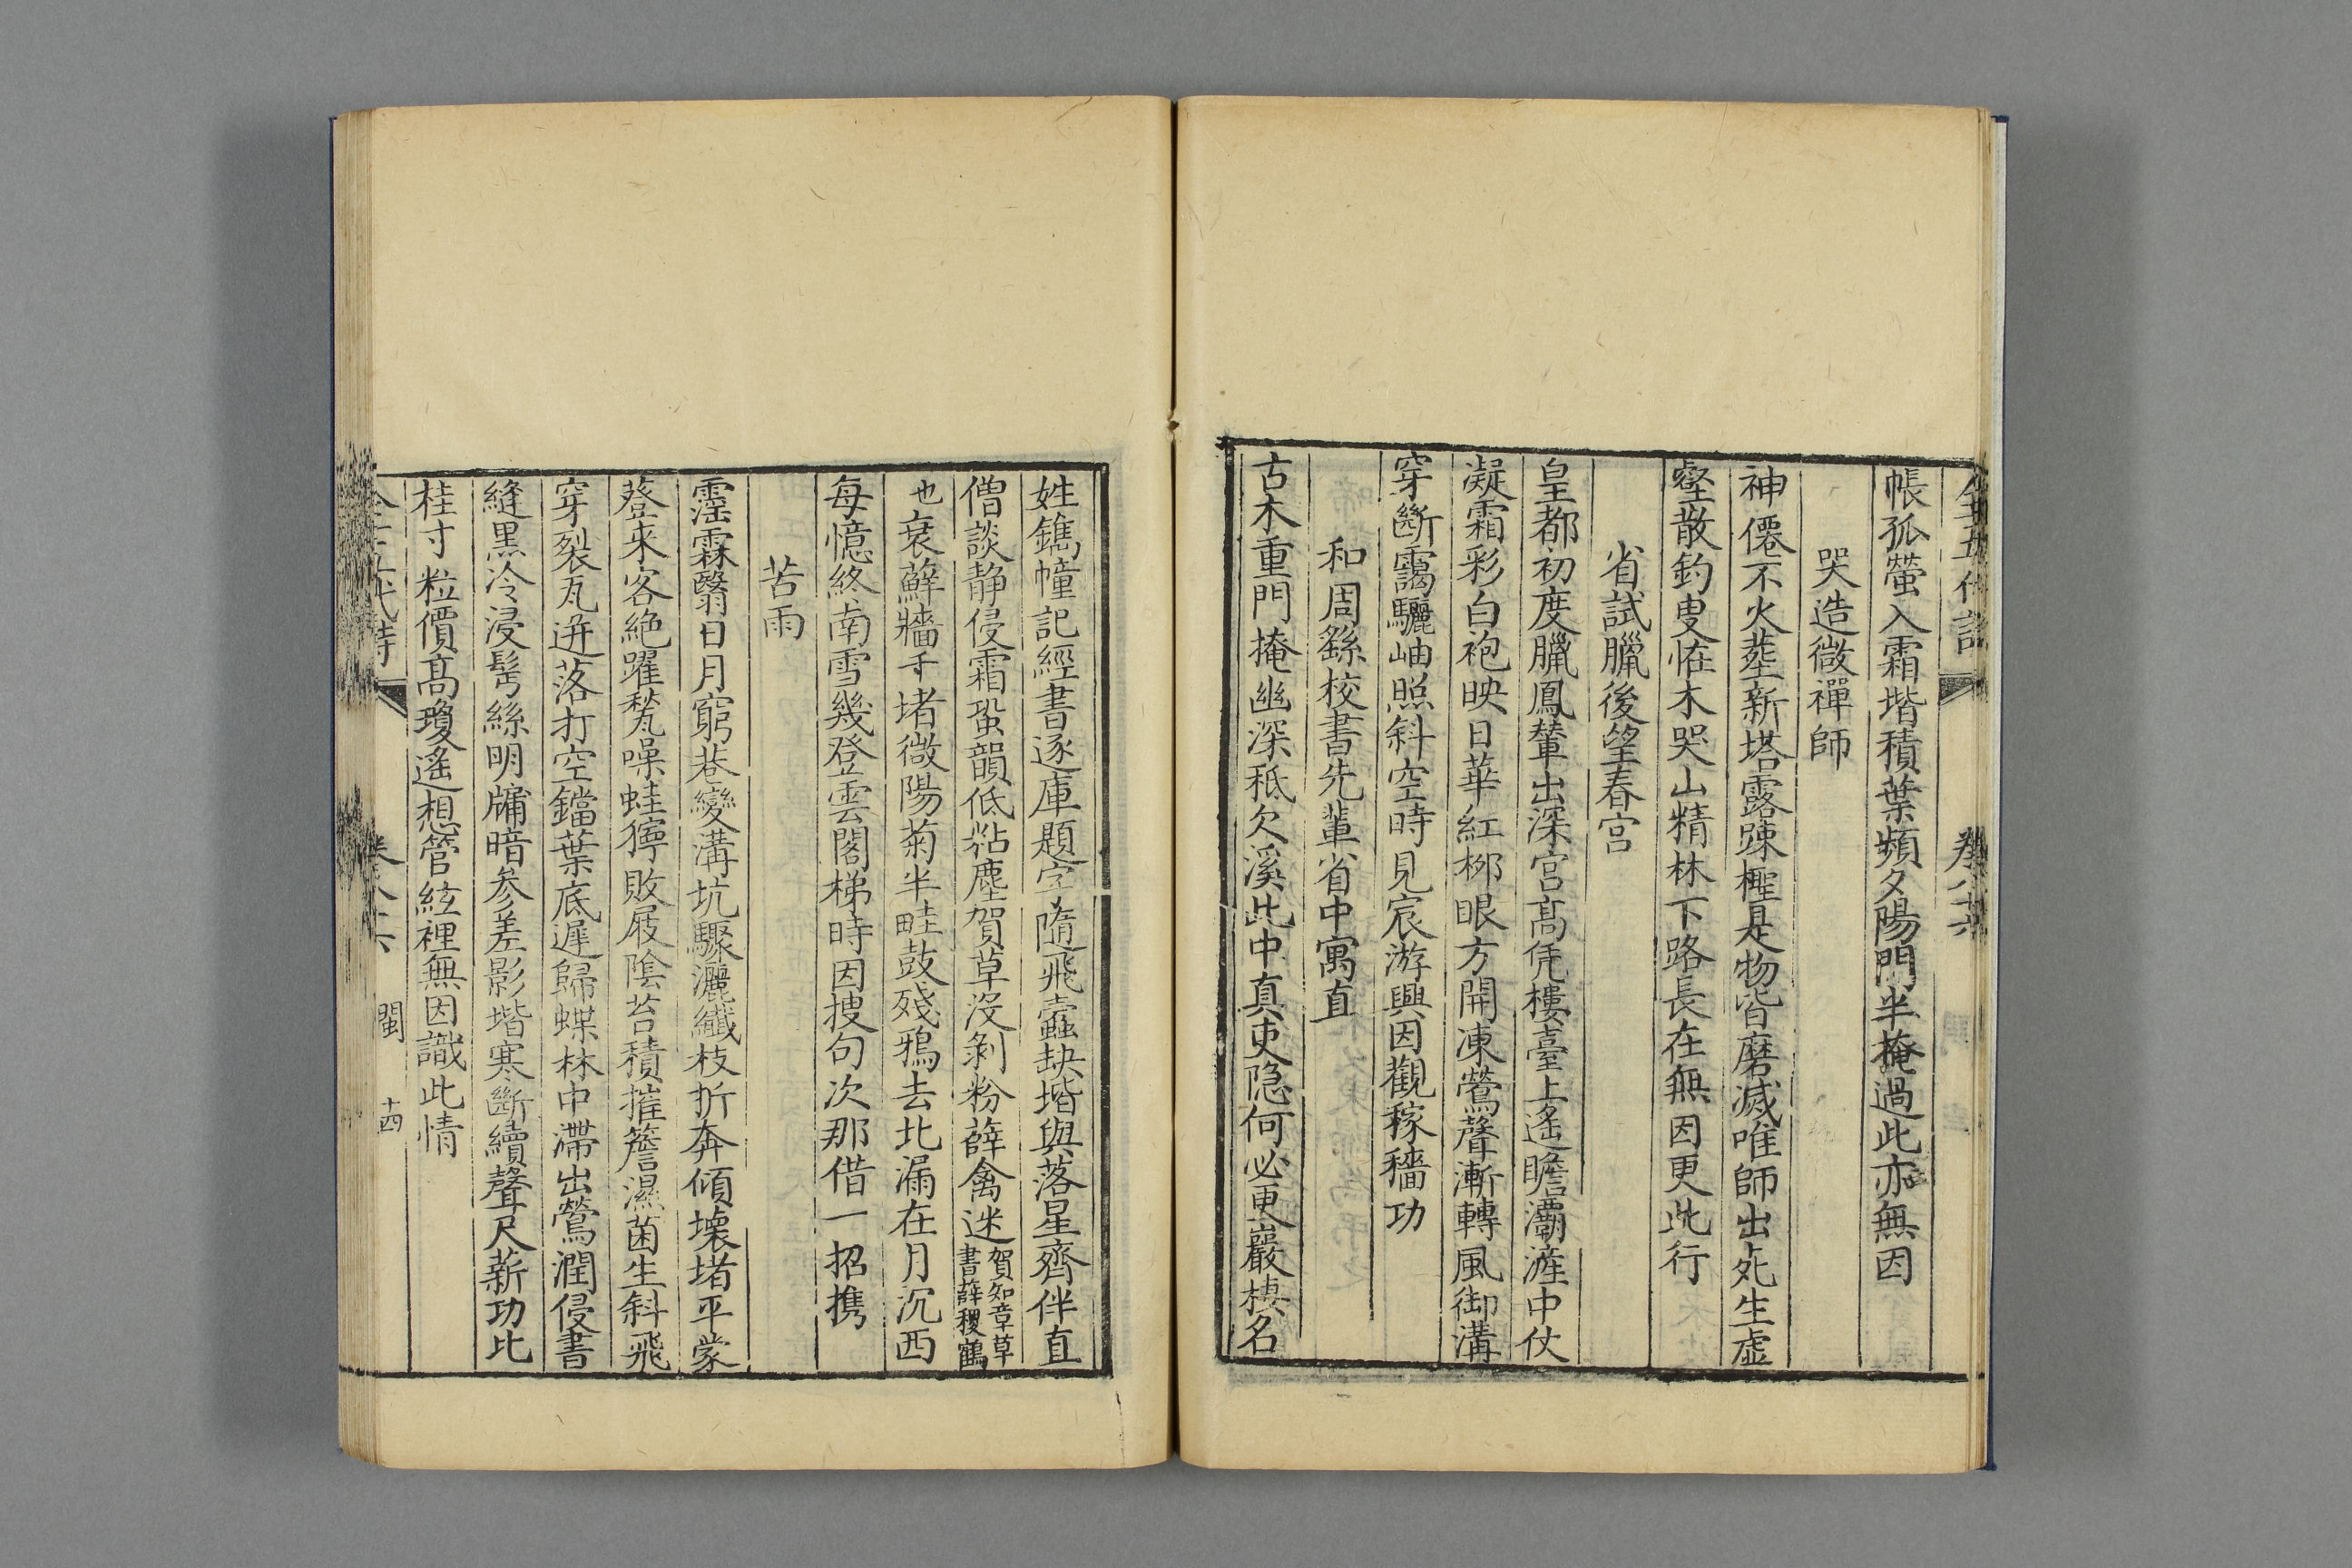 帳孤螢入霜堦積葉頻夕陽門半掩過此亦無因
哭造微禪師
神僊不火葬新塔露踈檉是物皆磨滅唯師出死生虛
壑散釣叟怪木哭山精林下路長在無因更此行
省試臘後望春宮
皇都初度臘鳳輦出深宮高凭樓臺上遙瞻灞滻中仗
凝霜彩白袍映日華紅柳眼方開凍鶯聲漸轉風御溝
穿斷靄驪岫照斜空時見宸游興因觀稼穡功
和周繇校書先輩省中寓直
古木重門掩幽深秪欠溪此中真吏隐何必更巖棲名
姓鐫幢記經書逐庫題字隨飛蠹缺堦與落星齊伴直
僧談静侵霜蛩韻低粘塵賀草沒剝粉薛禽迷賀知章草書薛稷鶴
也衰蘚牆千堵微陽菊半畦鼓殘鴉去北漏在月沉西
每憶終南雪幾登雲閣梯時因搜句次那借一招携
苦雨
霪霖翳日月窮巷變溝坑驟灑纖枝折奔傾壞堵平蒙
簦來客絶躍甃噪蛙獰敗屐陰苔積摧簷濕菌生斜飛
穿裂瓦迸落打空鐺葉底遲歸蝶林中滯出鶯潤侵書
縫黒冷浸髩絲明牗暗参差影堦寒斷續聲尺薪功比
桂寸粒價高瓊遙想管絃裡無因識此情
閩
十四